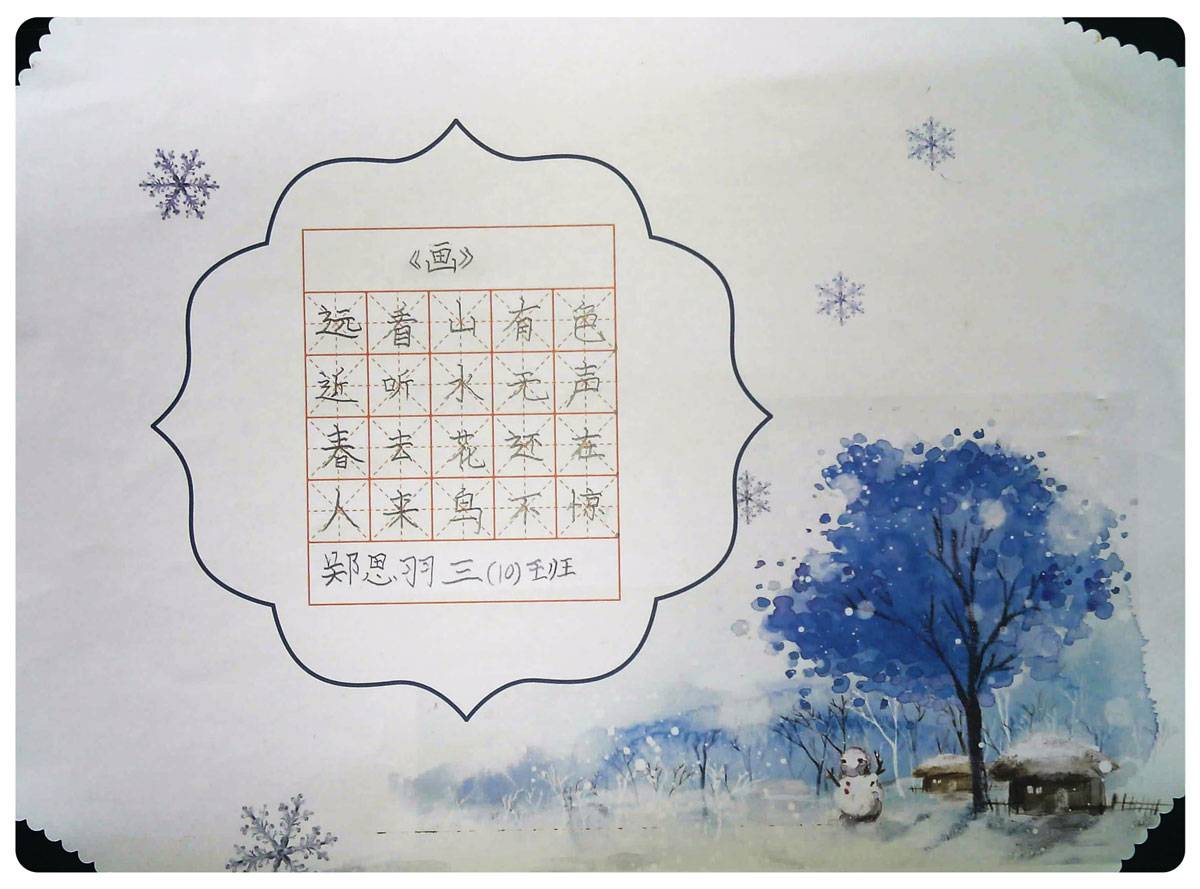 《画》
远看山有色
近听水无声
春去花还在
人来鸟不惊
郑思羽 三(10)班